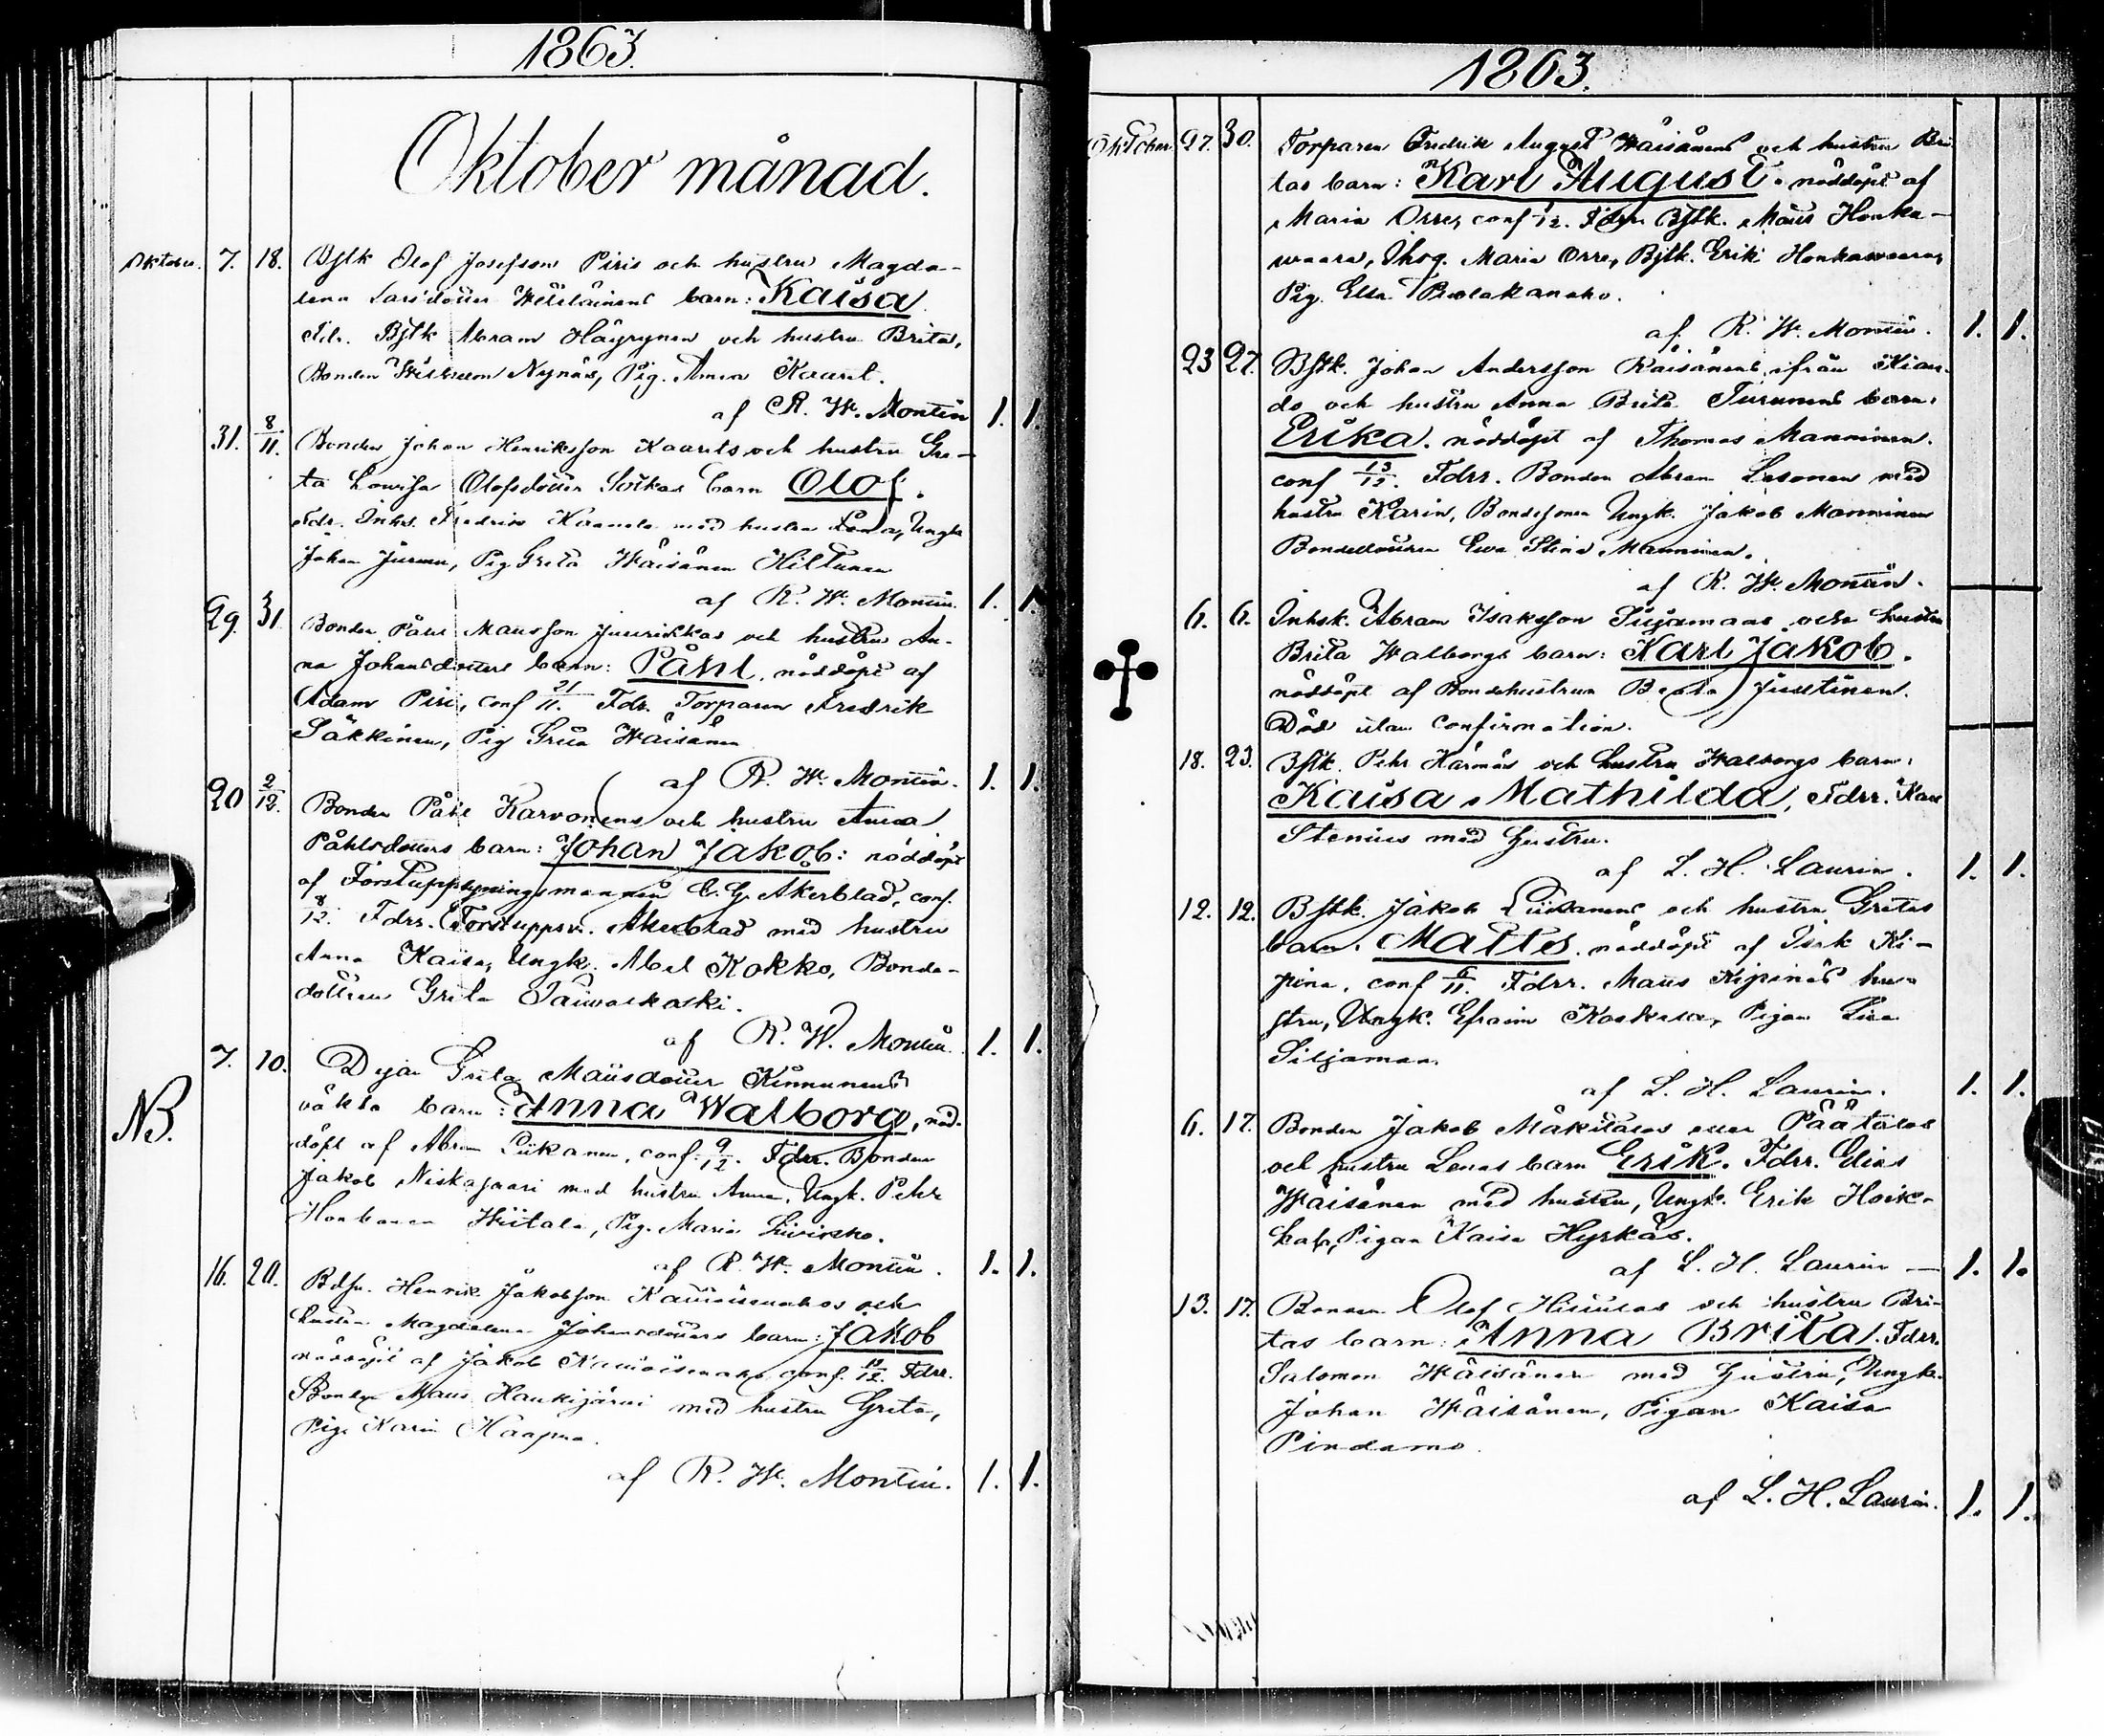 1863.
Oktober månad.
Oktober. 7. 18. Bftk Olof Josefsson Piris och hustru Magda-
lena Larsdotter barn: Kaisa.
Fdr. Bftk Abram Häyrynen och hustru Brita,
Bonden Nynäs, Pig. Anna Kaarel.
af R. W. Montin 1. 1.
31. 8/11. Bonden Johan Henriksson Kaarels och hustru Gre-
ta Lovisa Olofsdotter barn Olof.
Fdr. Inhs. Fredrik med hustru Lena, Ungk
Johan Pig Greta Wäisänen Hiltunen
af R. W. Montin. 1. 1.
29. 31. Bonden Påhl Mansson Juurikkas och hustru An-
na Johansdotters barn: Påhl, nöddöpt af
Adam Piri, conf 21/11. Fdr. Torparen Fredrik
Säkkinen, Pig Greta Wäisänen
af R. W. Montin. 1. 1.
20 2/12. Bonden Påhl Karvonens och hustru Anna
Påhlsdotters barn: Johan Jakob: nöddöpt
af Förstuppsyningsmannen C. G. Åkerblad, conf.
8/12. Fdrr. Förstuppsn. Åkerblad med hustru
Anna Kaisa, Ungk. Abel Kokko, Bonde-
dottren Greta
af R. W. Montin. 1. 1.
NB. 7. 10. Deja Greta Mansdotter Kinnunens
oäkta barn: Anna Walborg, nöd-
döpt af Abram Liikanen, conf. 9/12. Fdrr. Bonden
Jakob Niskajaari med hustru Anna, Ungk. Pehr
Honkanen Wiitala, Pig. Maria
af R. W. Montin. 1. 1.
16. 20. Bdsn. Henrik Jakobsson och
hustru Magdalena Johansdotters barn: Jakob
nöddöpt af Jakob conf. 13/12. Fdrr.
Bonden Mans Haukijärvi med hustru Greta,
Pig. Karin Haapna.
af R. W. Montin. 1. 1.
1863.
Oktober 27. 30. Torparen Fredrik August Wäisänens och hustru Bri-
tas barn: Karl August. nöddöpt af
Maria Orre, conf /12. Fdrr Bftk. Maus Honka-
waara, Maria Orre, Bftk. Erik Honkawaara,
Pig. Elsa Puolakanaho.
af R. W. Montin. 1. 1.
23 27. Bftk. Johan Andersson Räisänens ifrån Kian-
do och hustru Anna Brita Turunens barn:
Erika. nöddöpt af Thomas Manninen.
conf 13/12. Fdrr. Bonden Abram Lesonen med
hustru Karin, Bondesonen Ungk. Jakob Manninen
Bondedottren Ewa Stina Manninen.
af R. W. Montin.
6. 6. Inhsk. Abram Isaksson Siljamans och hustru
Brita Walborgs barn: Karl Jakob.
nöddöpt af Bondehustrun Beata Juustinen.
Död utan confirmation.
18. 23. Bftk. Pehr Härmäs och hustru Walborgs barn:
Kaisa Mathilda, Fdrr. Karl
Stenius med Hustru.
af L. H. Laurin. 1. 1.
12. 12. Bftk. Jakob Liikanens och hustru Gretas
barn: Mattes. nöddöpt af Isak Ki-
pinä. conf 6/11. Fdrr. Maus Kipinäs hu-
stru, Ungk. Efraim Koskela, Pigan Lisa
Siljaman.
af L. H. Laurin. 1. 1.
6. 17. Bonden Jakob Mäkitalos eller Päätalos
och hustru Lenas barn Erik. Fdrr. Elias
Wäisänen med hustru, Ungk. Erik Hoik-
ka, Pigan Kaisa Hyrkäs.
af L. H. Laurin — 1. 1.
13. 17. Bonden Olof och hustru Bri-
tas barn: Anna Brita. Fdrr.
Salomon Wäisänen med Hustru, Ungk.
Johan Wäisänen, Pigan Kaisa
Pindamo.
af L. H. Laurin. 1. 1.